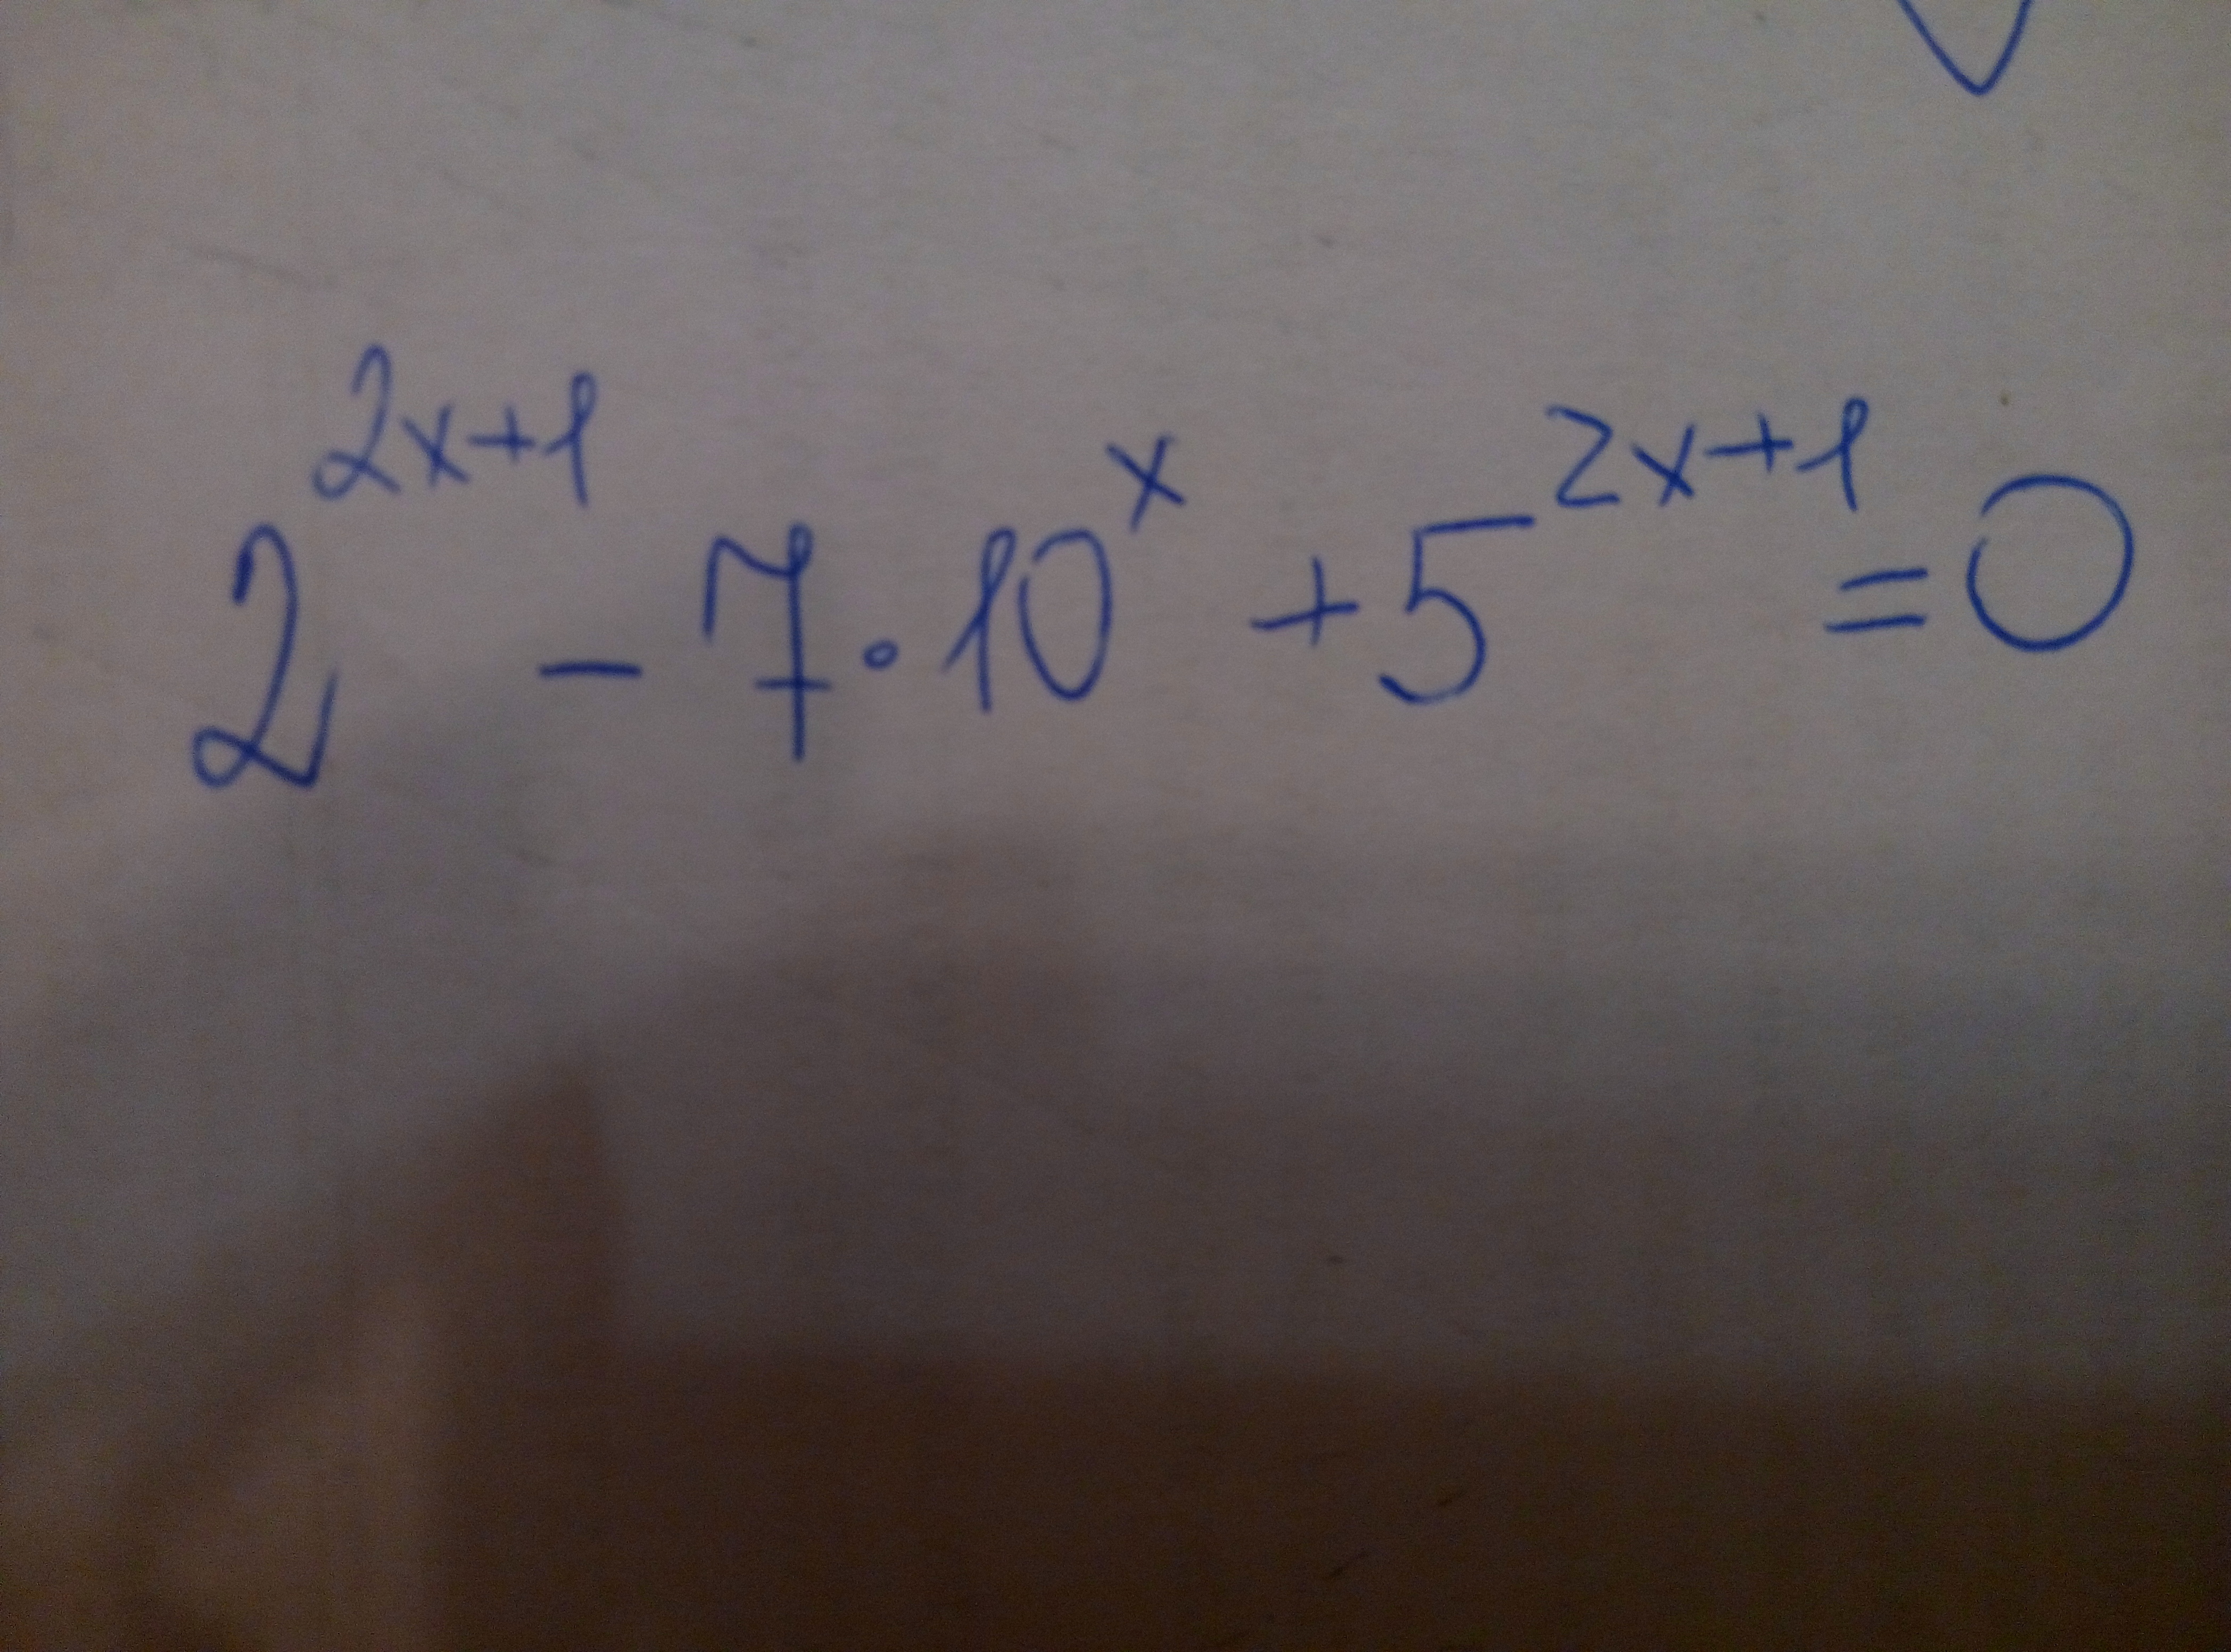 2^{2x+1} - 7 · 10^x + 5^{2x+1} = 0